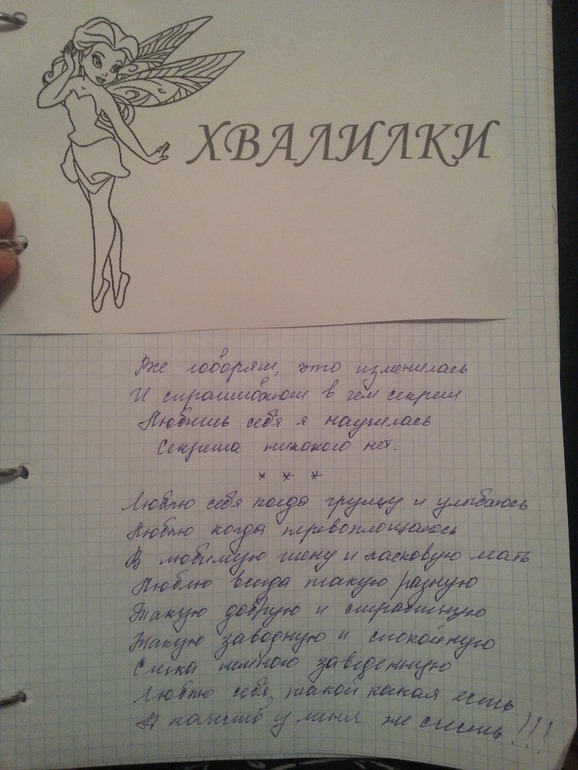 ХВАЛИЛКИ
Все говорят, что изменилась
И спрашивают в чем секрет
Любить себя я научилась
Секрета никакого нет.
* * *
Люблю себя когда грущу и улыбаюсь
Люблю когда перевоплощаюсь
В любимую жену и ласковую мать
Люблю всегда такую разную
Такую добрую и страстную
Такую заводную и спокойную
Слегка немного заведенную
Люблю себя, такой какая есть
А качеств у меня не счесть!!!